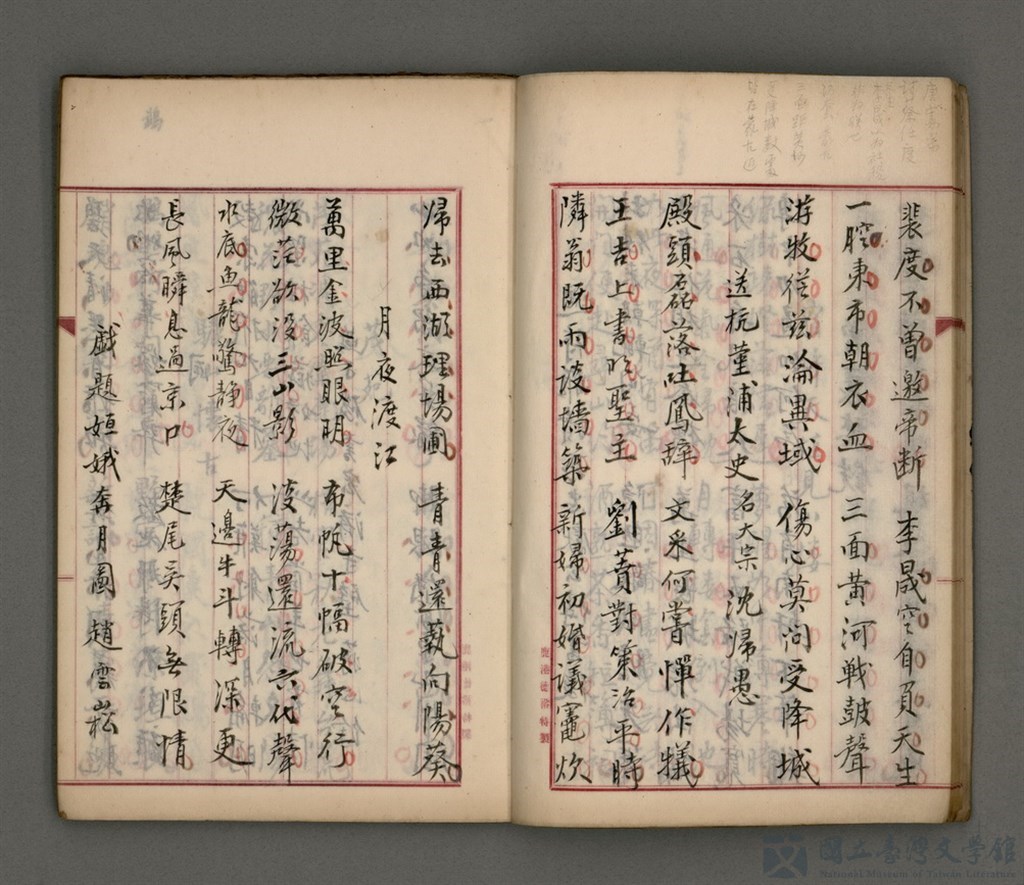 裴度不曾邀帝断 李晟空自負天生
一腔東市朝衣血 三面黄河戦皷聲
游牧從兹淪異域 傷心莫问受降城
送杭菫浦太史 名大宗 沈歸愚
殿頭磊落吐鳳辞 文采何嘗憚作犠
王吉上書明聖主 劉蕡對策治平時
隣翁既雨设墻築 新婦初婚議竈炊
鹿港德 特製
帰去西湖理場圃 青青還蓺向陽葵
月夜渡江
萬里金波照眼明 布帆十幅破空行
微茫欲没三山影 浩荡還流六代聲
水底鱼龍驚静夜 天邊牛斗轉深更
長風瞬息過京口 楚尾吴頭無限情
戯題姮娥奔月圖 趙雲崧
國立臺灣文學館
National Museum of Taiwan Literature